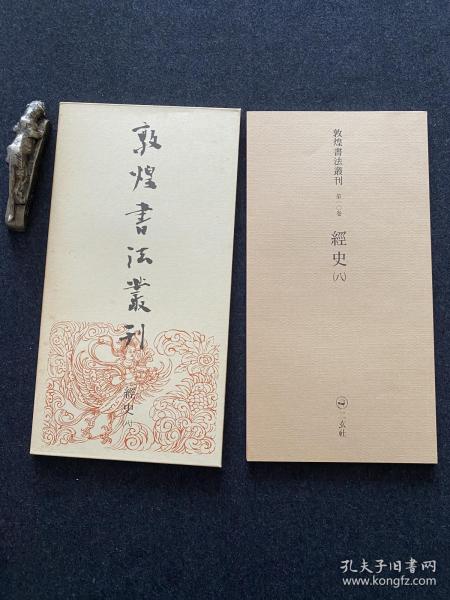 敦煌書法叢刊
經史(八)
敦煌書法叢刊
第一〇卷
經史(八)
二玄社
孔夫子旧书网
www.kongfz.com